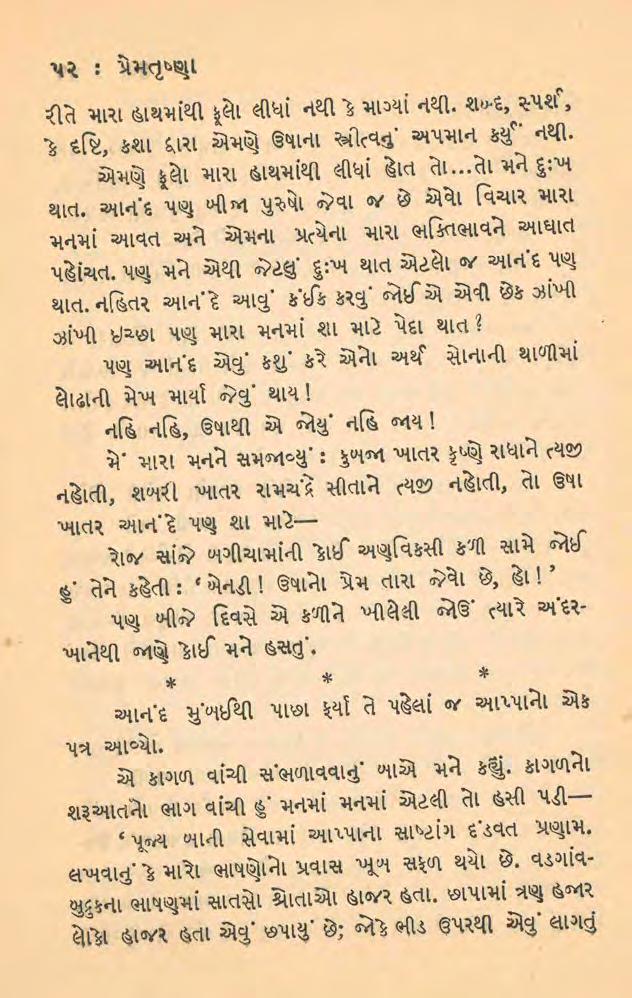 ૫૨ : પ્રેમતૃષ્ણા
રીતે મારા હાથમાંથી ફૂલો લીધાં નથી કે માગ્યાં નથી. શબ્દ, સ્પર્શ,
કે દૃષ્ટિ, કશા દ્વારા એમણે ઉષાના સ્ત્રીત્વનું અપમાન કર્યું નથી.
એમણે ફૂલો મારા હાથમાંથી લીધાં હોત તો...તો મને દુઃખ
થાત. આનંદ પણ બીજા પુરુષો જેવા જ છે એવો વિચાર મારા
મનમાં આવત અને એમના પ્રત્યેના મારા ભક્તિભાવને આઘાત
પહોંચત. પણ મને એથી જેટલું દુઃખ થાત એટલો જ આનંદ પણ
થાત. નહિતર આનંદે આવું કંઈક કરવું જોઈએ એવી છેક ઝાંખી
ઝાંખી ઇચ્છા પણ મારા મનમાં શા માટે પેદા થાત ?
પણ આનંદ એવું કશું કરે એનો અર્થ સોનાની થાળીમાં
લોઢાની મેખ માર્યા જેવું થાય !
નહિ નહિ, ઉષાથી એ જોયું નહિ જાય !
મેં મારા મનને સમજાવ્યું : કુબજા ખાતર કૃષ્ણે રાધાને ત્યજી
નહોતી, શબરી ખાતર રામચંદ્રે સીતાને ત્યજી નહોતી, તો ઉષા
ખાતર આનંદે પણ શા માટે—
રોજ સાંજે બગીચામાંની કોઈ અણવિકસી કળી સામે જોઈ
હું તેને કહેતી : ‘ બેનડી ! ઉષાનો પ્રેમ તારા જેવો છે, હો ! ’
પણ બીજે દિવસે એ કળીને ખીલેલી જોઉં ત્યારે અંદર-
ખાનેથી જાણે કોઈ મને હસતું.
* * *
આનંદ મુંબઈથી પાછા ફર્યા તે પહેલાં જ આપ્પાનો એક
પત્ર આવ્યો.
એ કાગળ વાંચી સંભળાવવાનું બાએ મને કહ્યું. કાગળનો
શરૂઆતનો ભાગ વાંચી હું મનમાં મનમાં એટલી તો હસી પડી—
‘ પૂજ્ય બાની સેવામાં આપ્પાના સાષ્ટાંગ દંડવત પ્રણામ.
લખવાનું કે મારો ભાષણોનો પ્રવાસ ખૂબ સફળ થયો છે. વડગાંવ-
બુદ્રુકના ભાષણમાં સાતસો શ્રોતાઓ હાજર હતા. છાપામાં ત્રણ હજાર
લોકો હાજર હતા એવું છપાયું છે; જોકે ભીડ ઉપરથી એવું લાગતું